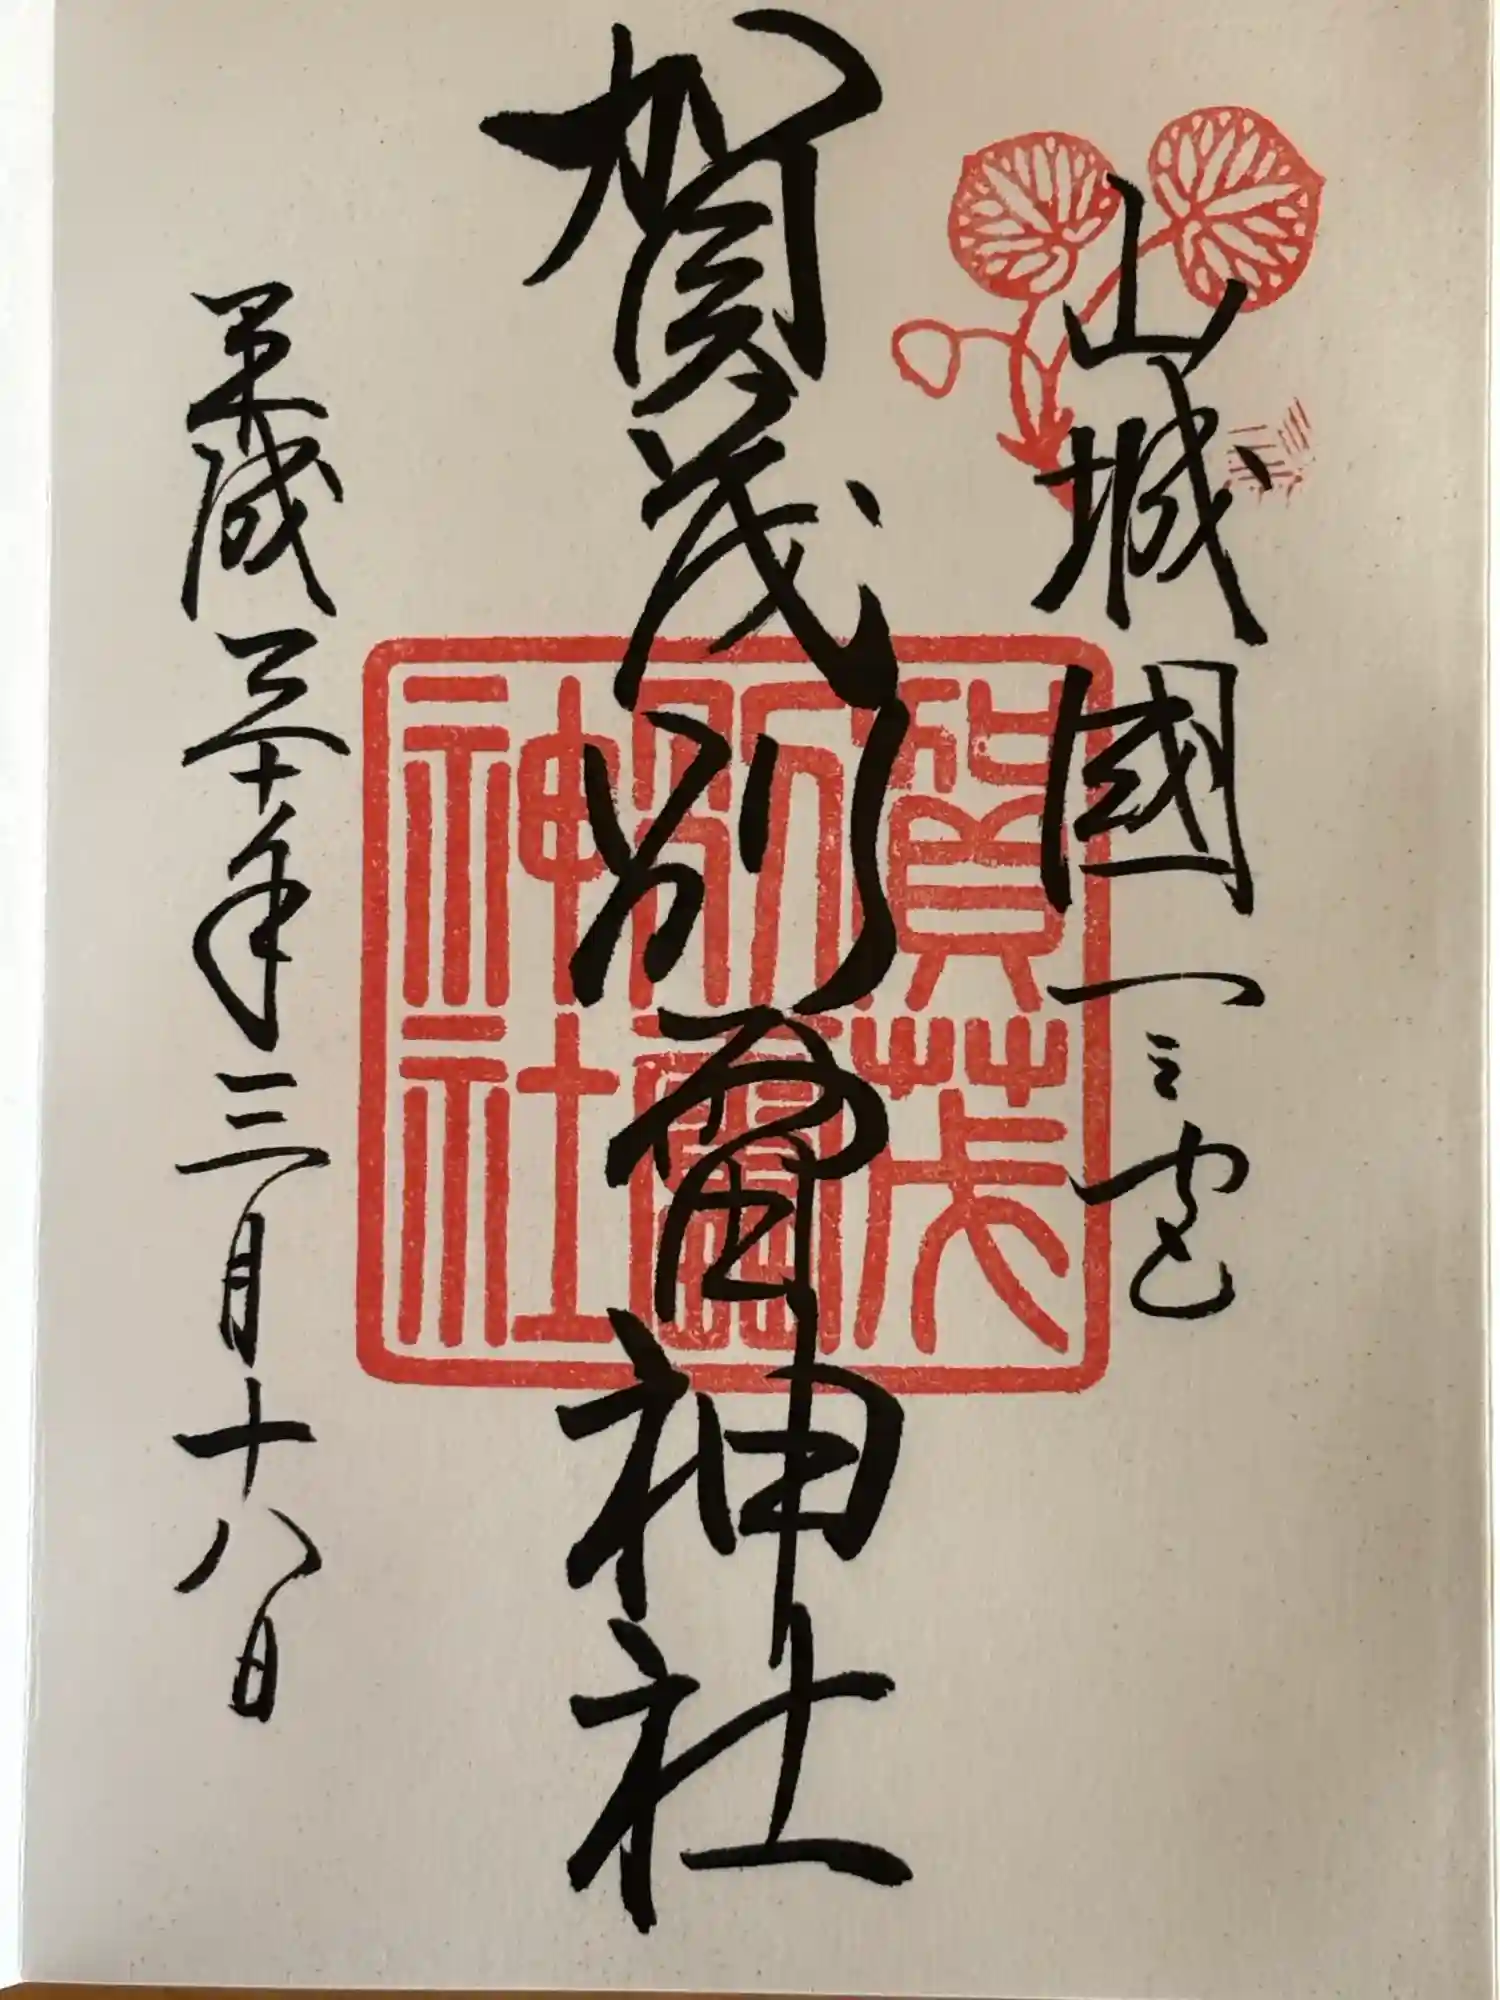 山城國一之宮
賀茂別雷神社
平成三十年三月十八日
賀茂
別雷
神社